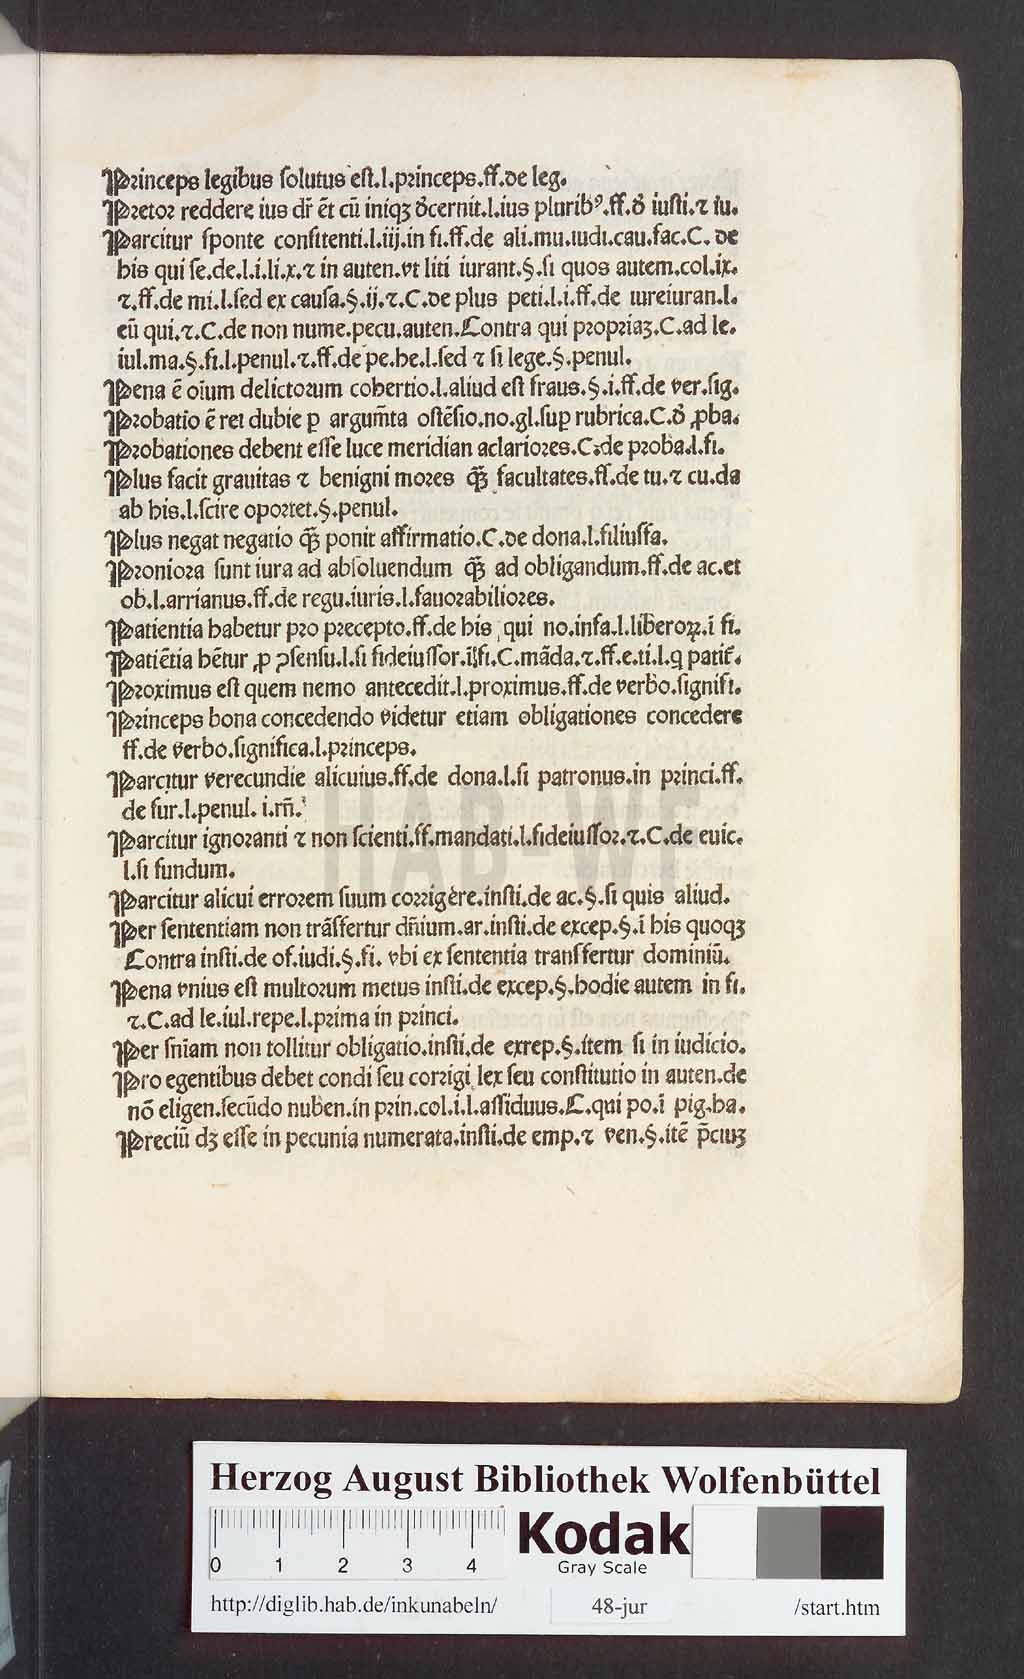 Princeps legibus ſolutus eſt.l.princeps.ff.de leg.
Pretor reddere ius dr̄ ēt cū iniqꝫ ꝺ̉cernit.l.ius pluribꝰ.ff.ꝺ̉ iuſti.⁊ iu.
Parcitur ſponte confitenti.l.iij.in fi.ff.de ali.mu.iudi.cau.fac.C. de
his qui ſe.de.l.i.li.x.⁊ in auten.vt liti iurant.§.ſi quos autem.col.ix.
⁊.ff.de mi.l.ſed ex cauſa.§.ij.⁊.C.de plus peti.l.i.ff.de iureiuran.l.
eū qui.⁊.C.de non nume.pecu.auten.Contra qui propriaꝫ.C.ad le.
iul.ma.§.fi.l.penul.⁊.ff.de pe.he.l.ſed ⁊ ſi lege.§.penul.
Pena ē oīum delictorum cohertio.l.aliud eſt fraus.§.i.ff.de ver.ſig.
Probatio ē rei dubie ꝑ argum̄ta oſtēſio.no.gl.ſuꝑ rubrica.C.ꝺ̉ ꝓba.
Probationes debent eſſe luce meridian aclariores.C.de proba.l.fi.
Plus facit grauitas ⁊ benigni mores q̄ꝫ facultates.ff.de tu.⁊ cu.da
ab his.l.ſcire oportet.§.penul.
Plus negat negatio q̄ꝫ ponit affirmatio.C.de dona.l.filiuſfa.
Proniora ſunt iura ad abſoluendum q̄ꝫ ad obligandum.ff.de ac.et
ob.l.arrianus.ff.de regu.iuris.l.fauorabiliores.
Patientia habetur pro precepto.ff.de his qui no.infa.l.liberoꝝ.ī fi.
Patiētia hētur ꝓ ꝯſenſu.l.ſi fideiuſſor.§.fi.C.māda.⁊.ff.e.ti.l.q patit̄.
Proximus eſt quem nemo antecedit.l.proximus.ff.de verbo.ſignifi.
Princeps bona concedendo videtur etiam obligationes concedere
ff.de verbo.ſignifica.l.princeps.
Parcitur verecundie alicuius.ff.de dona.l.ſi patronus.in princi.ff.
de fur.l.penul. i.rn̄.
Parcitur ignoranti ⁊ non ſcienti.ff.mandati.l.fideiuſſor.⁊.C.de euic.
l.ſi fundum.
Parcitur alicui errorem ſuum corrigere.inſti.de ac.§.ſi quis aliud.
Per ſententiam non trāſfertur dn̄ium.ar.inſti.de excep.§.ī his quoqꝫ
Contra inſti.de of.iudi.§.fi. vbi ex ſententia tranſfertur dominiū.
Pena vnius eſt multorum metus inſti.de excep.§.hodie autem in fi.
⁊.C.ad le.iul.repe.l.prima in princi.
Per ſniam non tollitur obligatio.inſti.de exrep.§.item ſi in iudicio.
Pro egentibus debet condi ſeu corrigi lex ſeu conſtitutio in auten.de
nō eligen.ſecūdo nuben.in prin.col.i.l.aſſiduus.C.qui po.ī pig.ha.
Preciū dꝫ eſſe in pecunia numerata.inſti.de emp.⁊ ven.§.itē p̄ciuꝫ
HAB-WF
Herzog August Bibliothek Wolfenbüttel
0 1 2 3 4
Kodak
Gray Scale
http://diglib.hab.de/inkunabeln/ 48-jur /start.htm